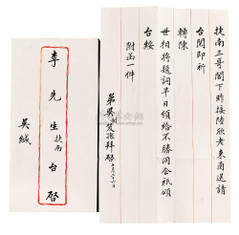 捷南三哥閣下昨接陸欣老東南送請
台閱即祈
轉陳
世相將題詞早日頒給不勝同企祇頌
台綏
附函一件
弟吳
拜啓
李先生捷南台啓
吳緘